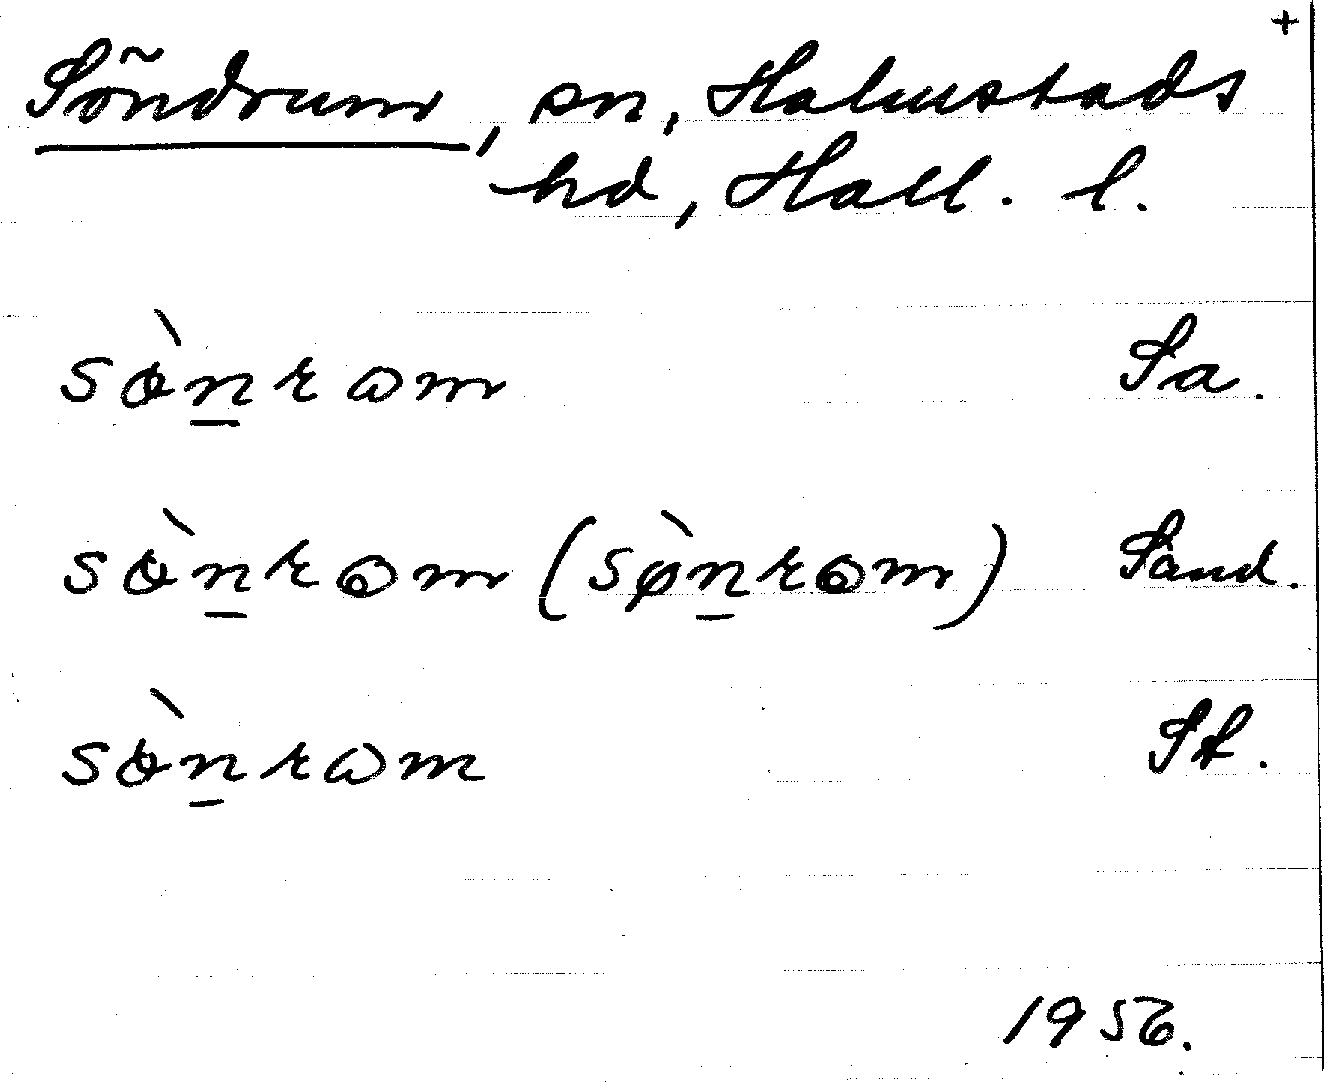 +
Söndrum, sn, Halmstads
hd, Hall. l.
sɵ̀n̲rɷm Sa.
sɵ̀n̲rɷm (sø̀n̲rɷm) Sand.
sɵ̀n̲rɷm St.
1956.